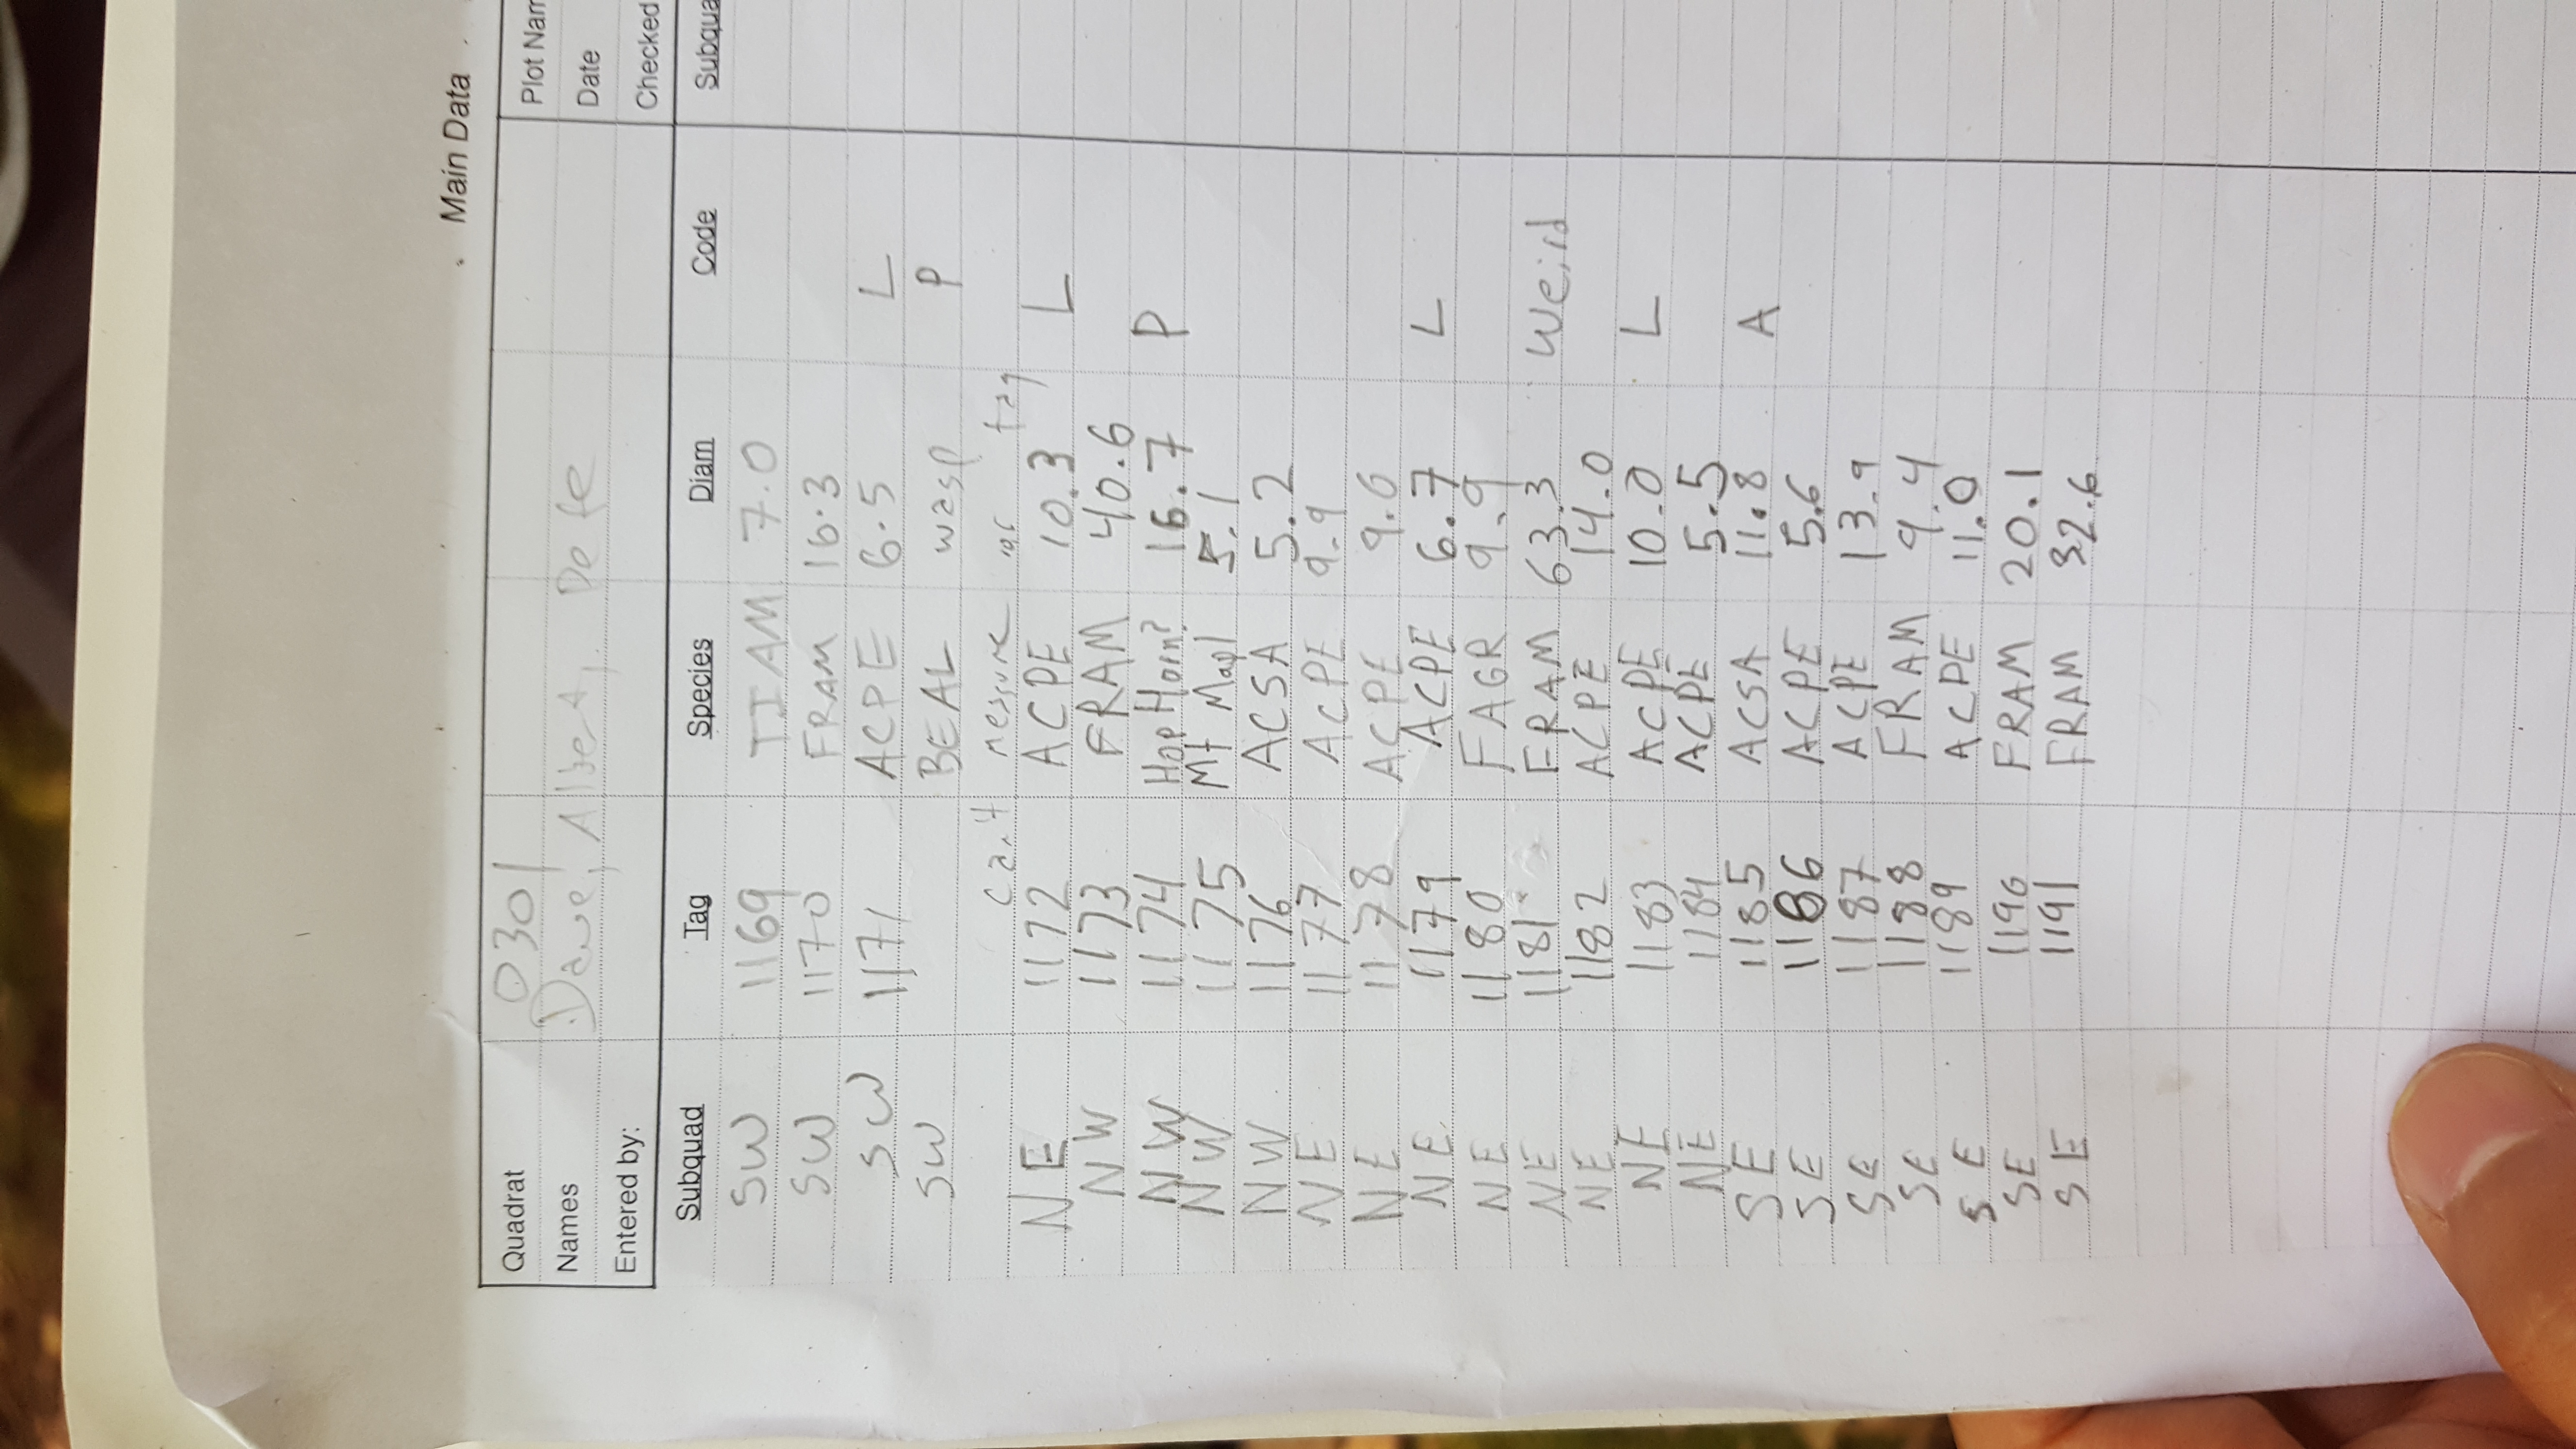 Main Data
Quadrat 0301 Plot Nam
Names Dave, Albert, Pete Date
Entered by: Checked
Subquad Tag Species Diam Code Subqua
SW 1169 TIAM 7.0
SW 1170 FRAM 16.3
SW 1171 ACPE 6.5 L
SW BEAL wasp P
can't messure or tag
NE 1172 ACPE 10.3 L
NW 1173 FRAM 40.6
NW 1174 Hop Horn? 16.7 P
NW 1175 Mt Mapl 5.1
NW 1176 ACSA 5.2
NE 1177 ACPE 9.9
NE 1178 ACPE 9.0
NE 1179 ACPE 6.7 L
NE 1180 FAGR 9.9
NE 1181 FRAM 63.3 Weird
NE 1182 ACPE 14.0
NE 1183 ACPE 10.0 L
NE 1184 ACPE 5.5
SE 1185 ACSA 11.8 A
SE 1186 ACPE 5.6
SE 1187 ACPE 13.9
SE 1188 FRAM 9.4
SE 1189 ACPE 11.0
SE 1190 FRAM 20.1
SE 1191 FRAM 32.6